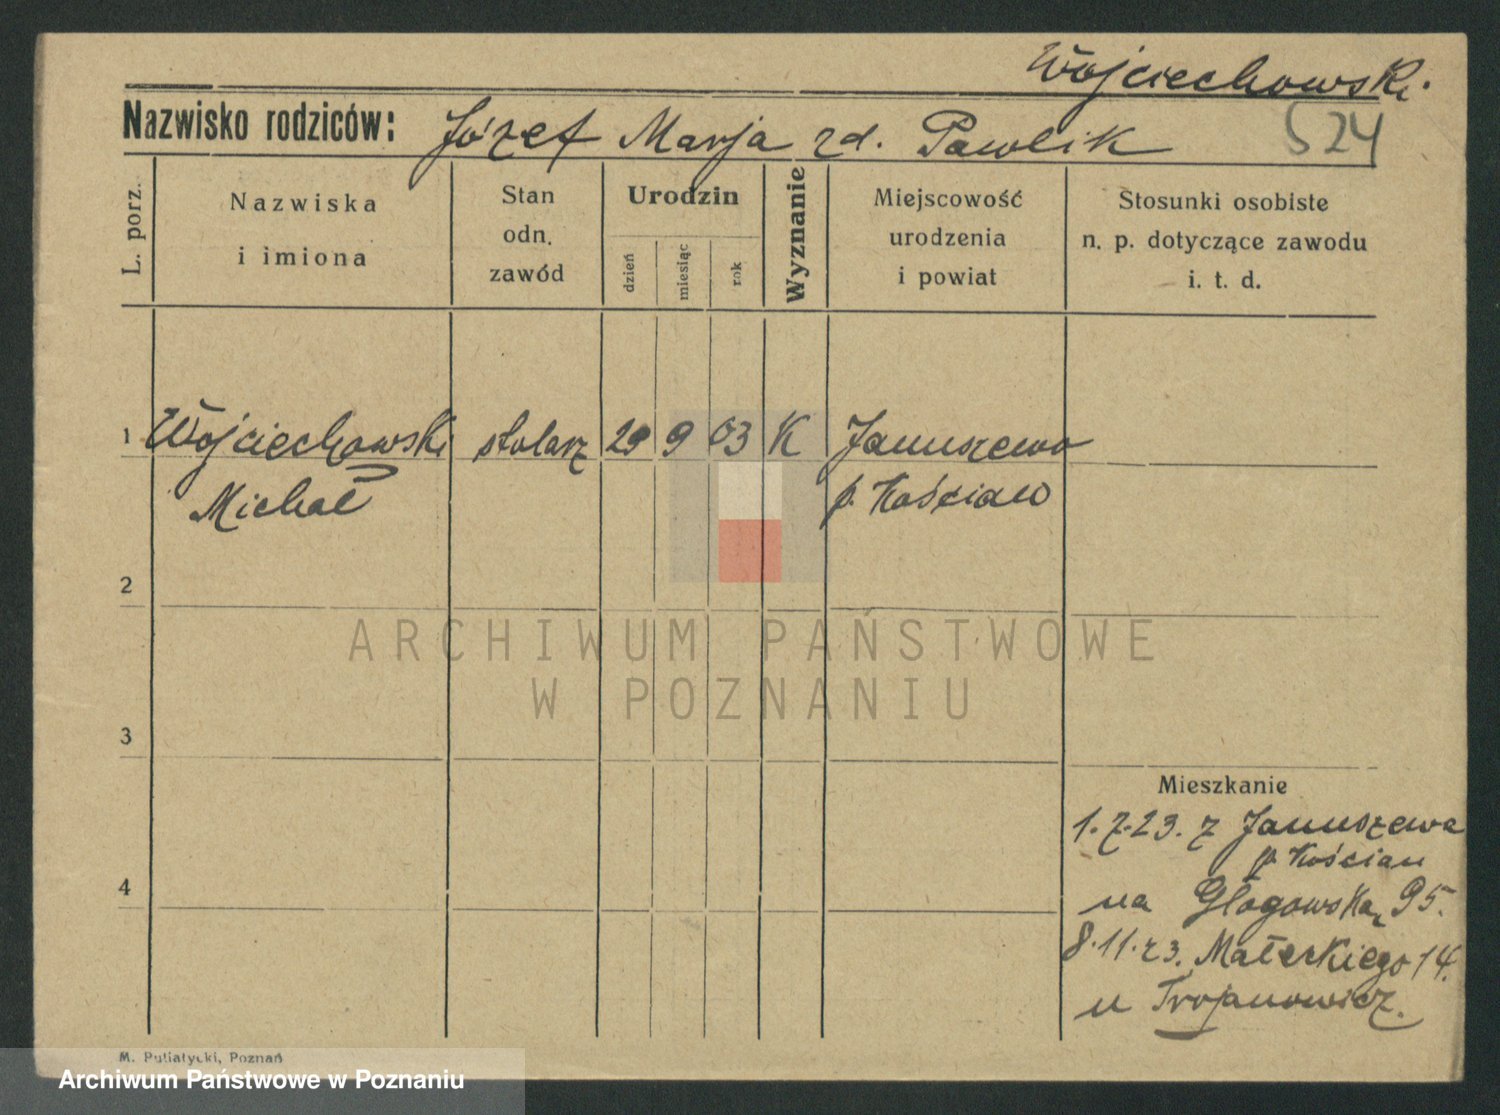 Wojciechowski.
Nazwisko rodziców: Józef Marja zd. Pawlik 524
L. porz.
Nazwiska
i imiona
Stan
odn.
zawód
Urodzin
dzień
miesiąc
rok
Wyznanie
Miejscowość
urodzenia
i powiat
Stosunki osobiste
n. p. dotyczące zawodu
i. t. d.
1 Wojciechowski stolarz 29 9 03 K Januszewo
Michał p. Kościan
2
ARCHIWUM PAŃSTWOWE
W POZNANIU
3
Mieszkanie
1.7.23. z Januszewa
p. Kościan
4
na Głogowską 95.
8.11.23. Małeckiego 14.
u Trojanowicz.
M. Putiatycki, Poznań
Archiwum Państwowe w Poznaniu